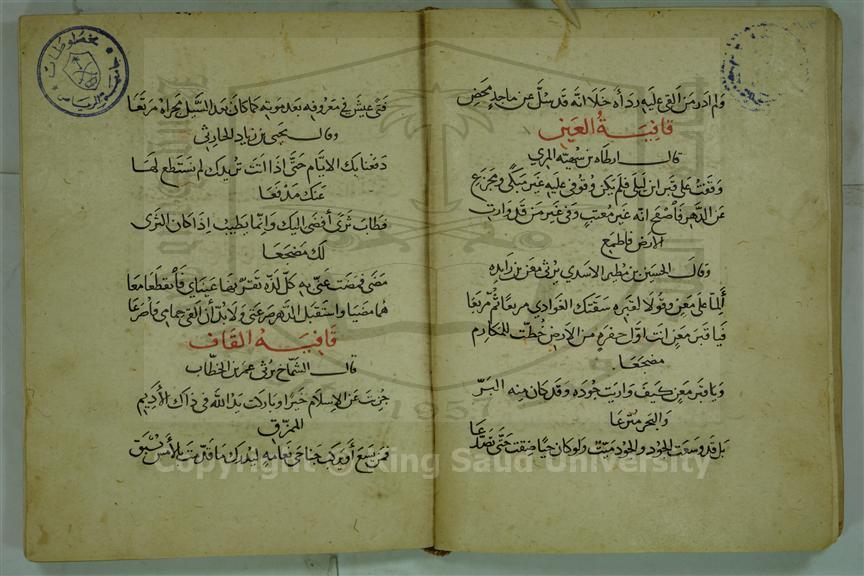 ولم ادر من القى عليه رداءه خلا انه قد سل عن ماجد محض
قافية العين
قال ارطاه بن سهيه المري
وقفت على قبر ابن ليلى فلم يكن وقوفي عليه غير مبكى ومجزع
عن الدهر فاصفح انه غير معتب وفي غير من قد وارت
الارض فاطمع
وقال الحسين بن مطير الاسدي يرثي معن بن زايده
ألما على معن وقولا لقبره سقتك الغوادي مربعا ثم مربعا
فيا قبر معن انت اول حفره من الارض خطت للمكارم
مضجعا
ويا قبر معن كيف واريت جوده وقد كان منه البر
والبحر مترعا
بل قد وسعت الجود والجود ميت ولو كان حيا ضقت حتى تصدعا
فتى عيش في معروفه بعد موته كما كان بعد السيل مجراه مرتعا
وقال يحيى بن زياد الحارثي
دفعنا بك الايام حتى اذا اتت تريدك لم نستطع لها
عنك مدفعا
فطاب ثرى أفضى اليك وانما يطيب اذا كان الثرى
لك مضجعا
مضى فمضت عني به كل لذه تقر بها عيناي فانقطعا معا
هما مضيا واستقبل الدهر صرعتي ولا بد أن القى حمامي فاصرعا
قافية القاف
قال الشماخ يرثي عمر بن الخطاب
جزيت عن الاسلام خيرا وباركت يد الله في ذاك الأديم
الممزق
فمن يسع أو يركب جناحي نعامه ليدرك ما قدمت بالأمس يسبق
مخطوطات
1957
Copyright © King Saud University